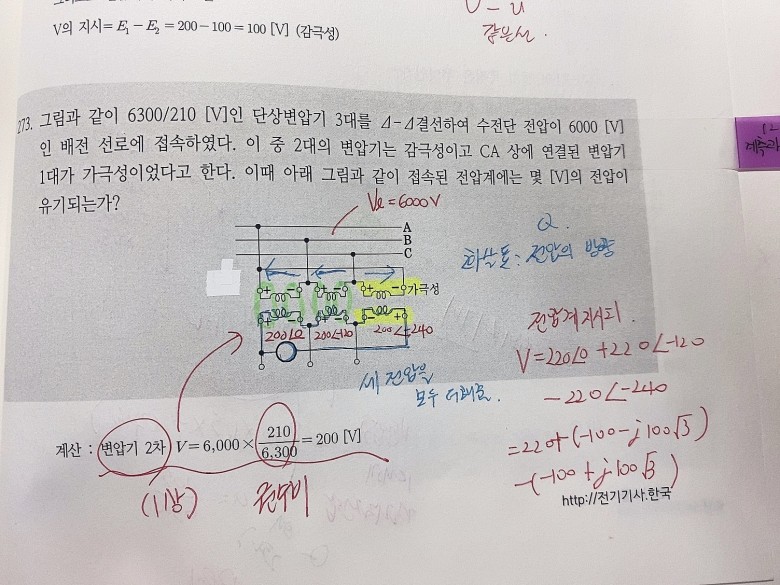 V의 지시= E₁ − E₂ = 200 − 100 = 100 [V] (감극성)
같은선.
273. 그림과 같이 6300/210 [V]인 단상변압기 3대를 Δ-Δ결선하여 수전단 전압이 6000 [V]
인 배전 선로에 접속하였다. 이 중 2대의 변압기는 감극성이고 CA 상에 연결된 변압기
1대가 가극성이었다고 한다. 이때 아래 그림과 같이 접속된 전압계에는 몇 [V]의 전압이
유기되는가?
12
계측
Vℓ=6000V
A
B
C
Q.
화살표: 전압의 방향
+ − + − + − 가극성
+ − + − − +
200∠0 200∠-120 200∠-240
세 전압을
모두 더해줌.
전압계 지시치.
V=220∠0 +220∠-120
-220∠-240
=220+(-100-j100√3)
-(-100+j100√3)
계산 : 변압기 2차 V = 6,000 × 210/6,300 = 200 [V]
(1상) 권수비
http://전기기사.한국